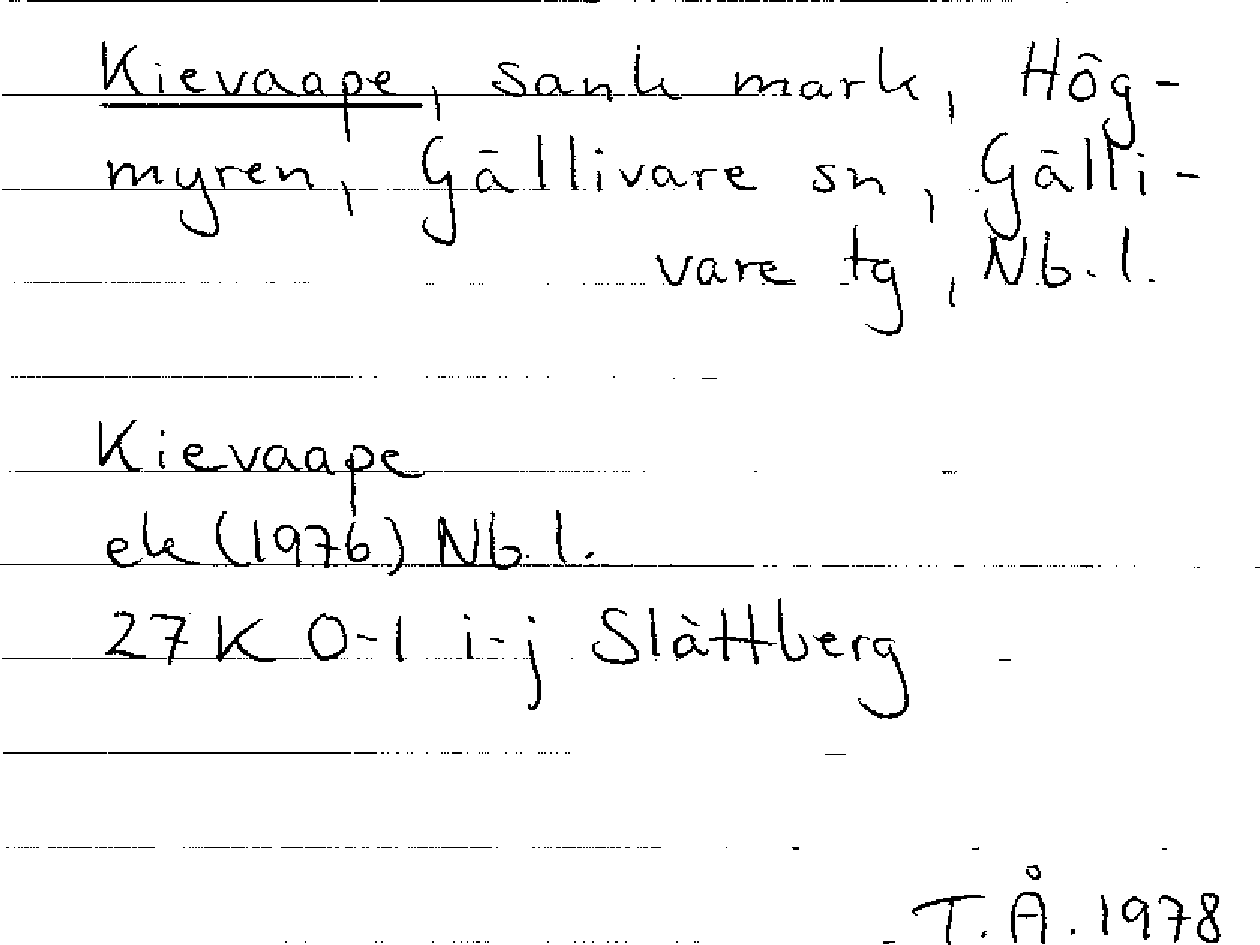 Kievaape, sank mark, Hög-
myren, Gällivare sn, Gälli-
vare tg, Nb.l.
Kievaape
ek (1976) Nb.l.
27 K 0-1 i-j Slättberg
T.Å. 1978